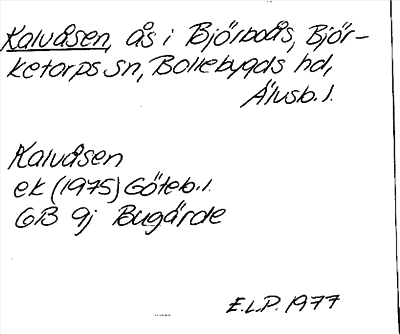 Kalvåsen, ås i Björboås, Björ-
ketorps sn, Bollebygds hd,
Älvsb. l.
Kalvåsen
ek (1975) Göteb. l.
GB 9j Bugärde
E.L.P. 1977